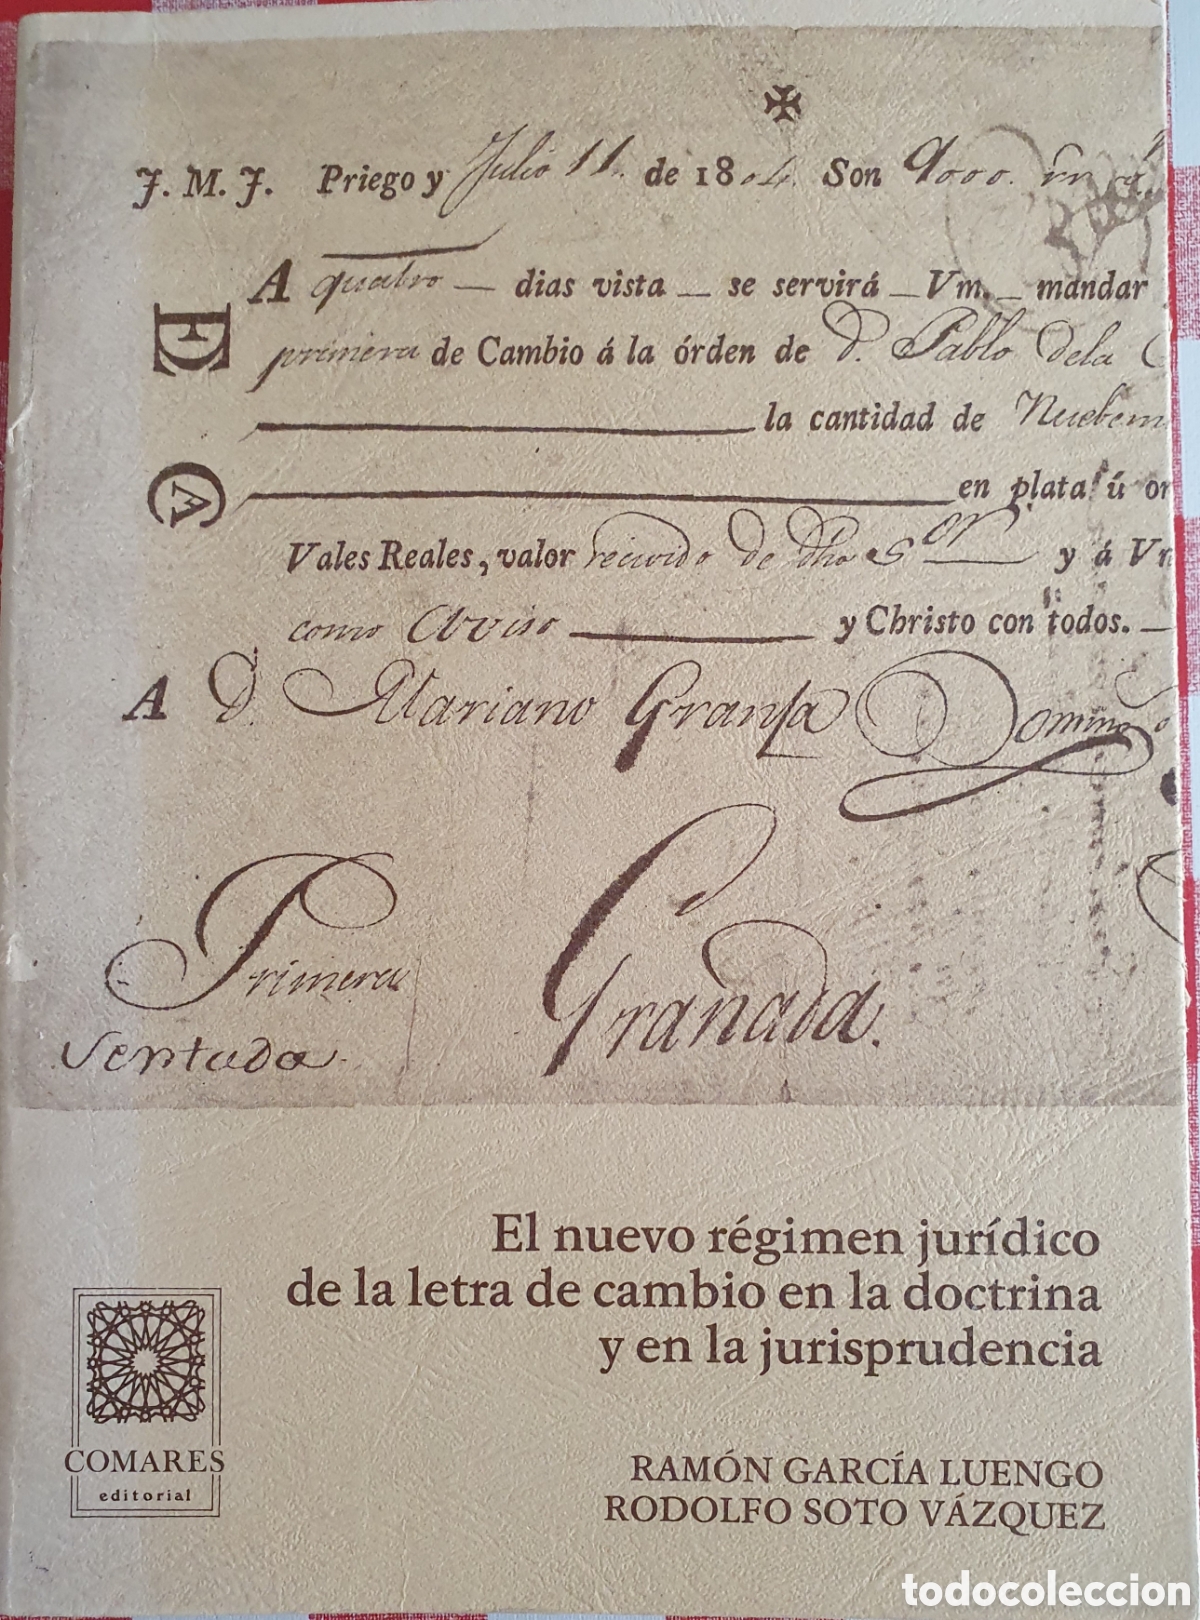 J. M. J. Priego y Julio 11. de 1804. Son 9000. rv
A quatro dias vista se servirá Vm. mandar
primera de Cambio á la órden de D. Pablo dela
la cantidad de Nuebem
en plata ú or
Vales Reales, valor recivido de dho Sor y á Vm
como Aviso y Christo con todos.
A D. Mariano Gransa Domingo
Primera Granada.
Sentada.
El nuevo régimen jurídico
de la letra de cambio en la doctrina
y en la jurisprudencia
COMARES
editorial
RAMÓN GARCÍA LUENGO
RODOLFO SOTO VÁZQUEZ
todocoleccion